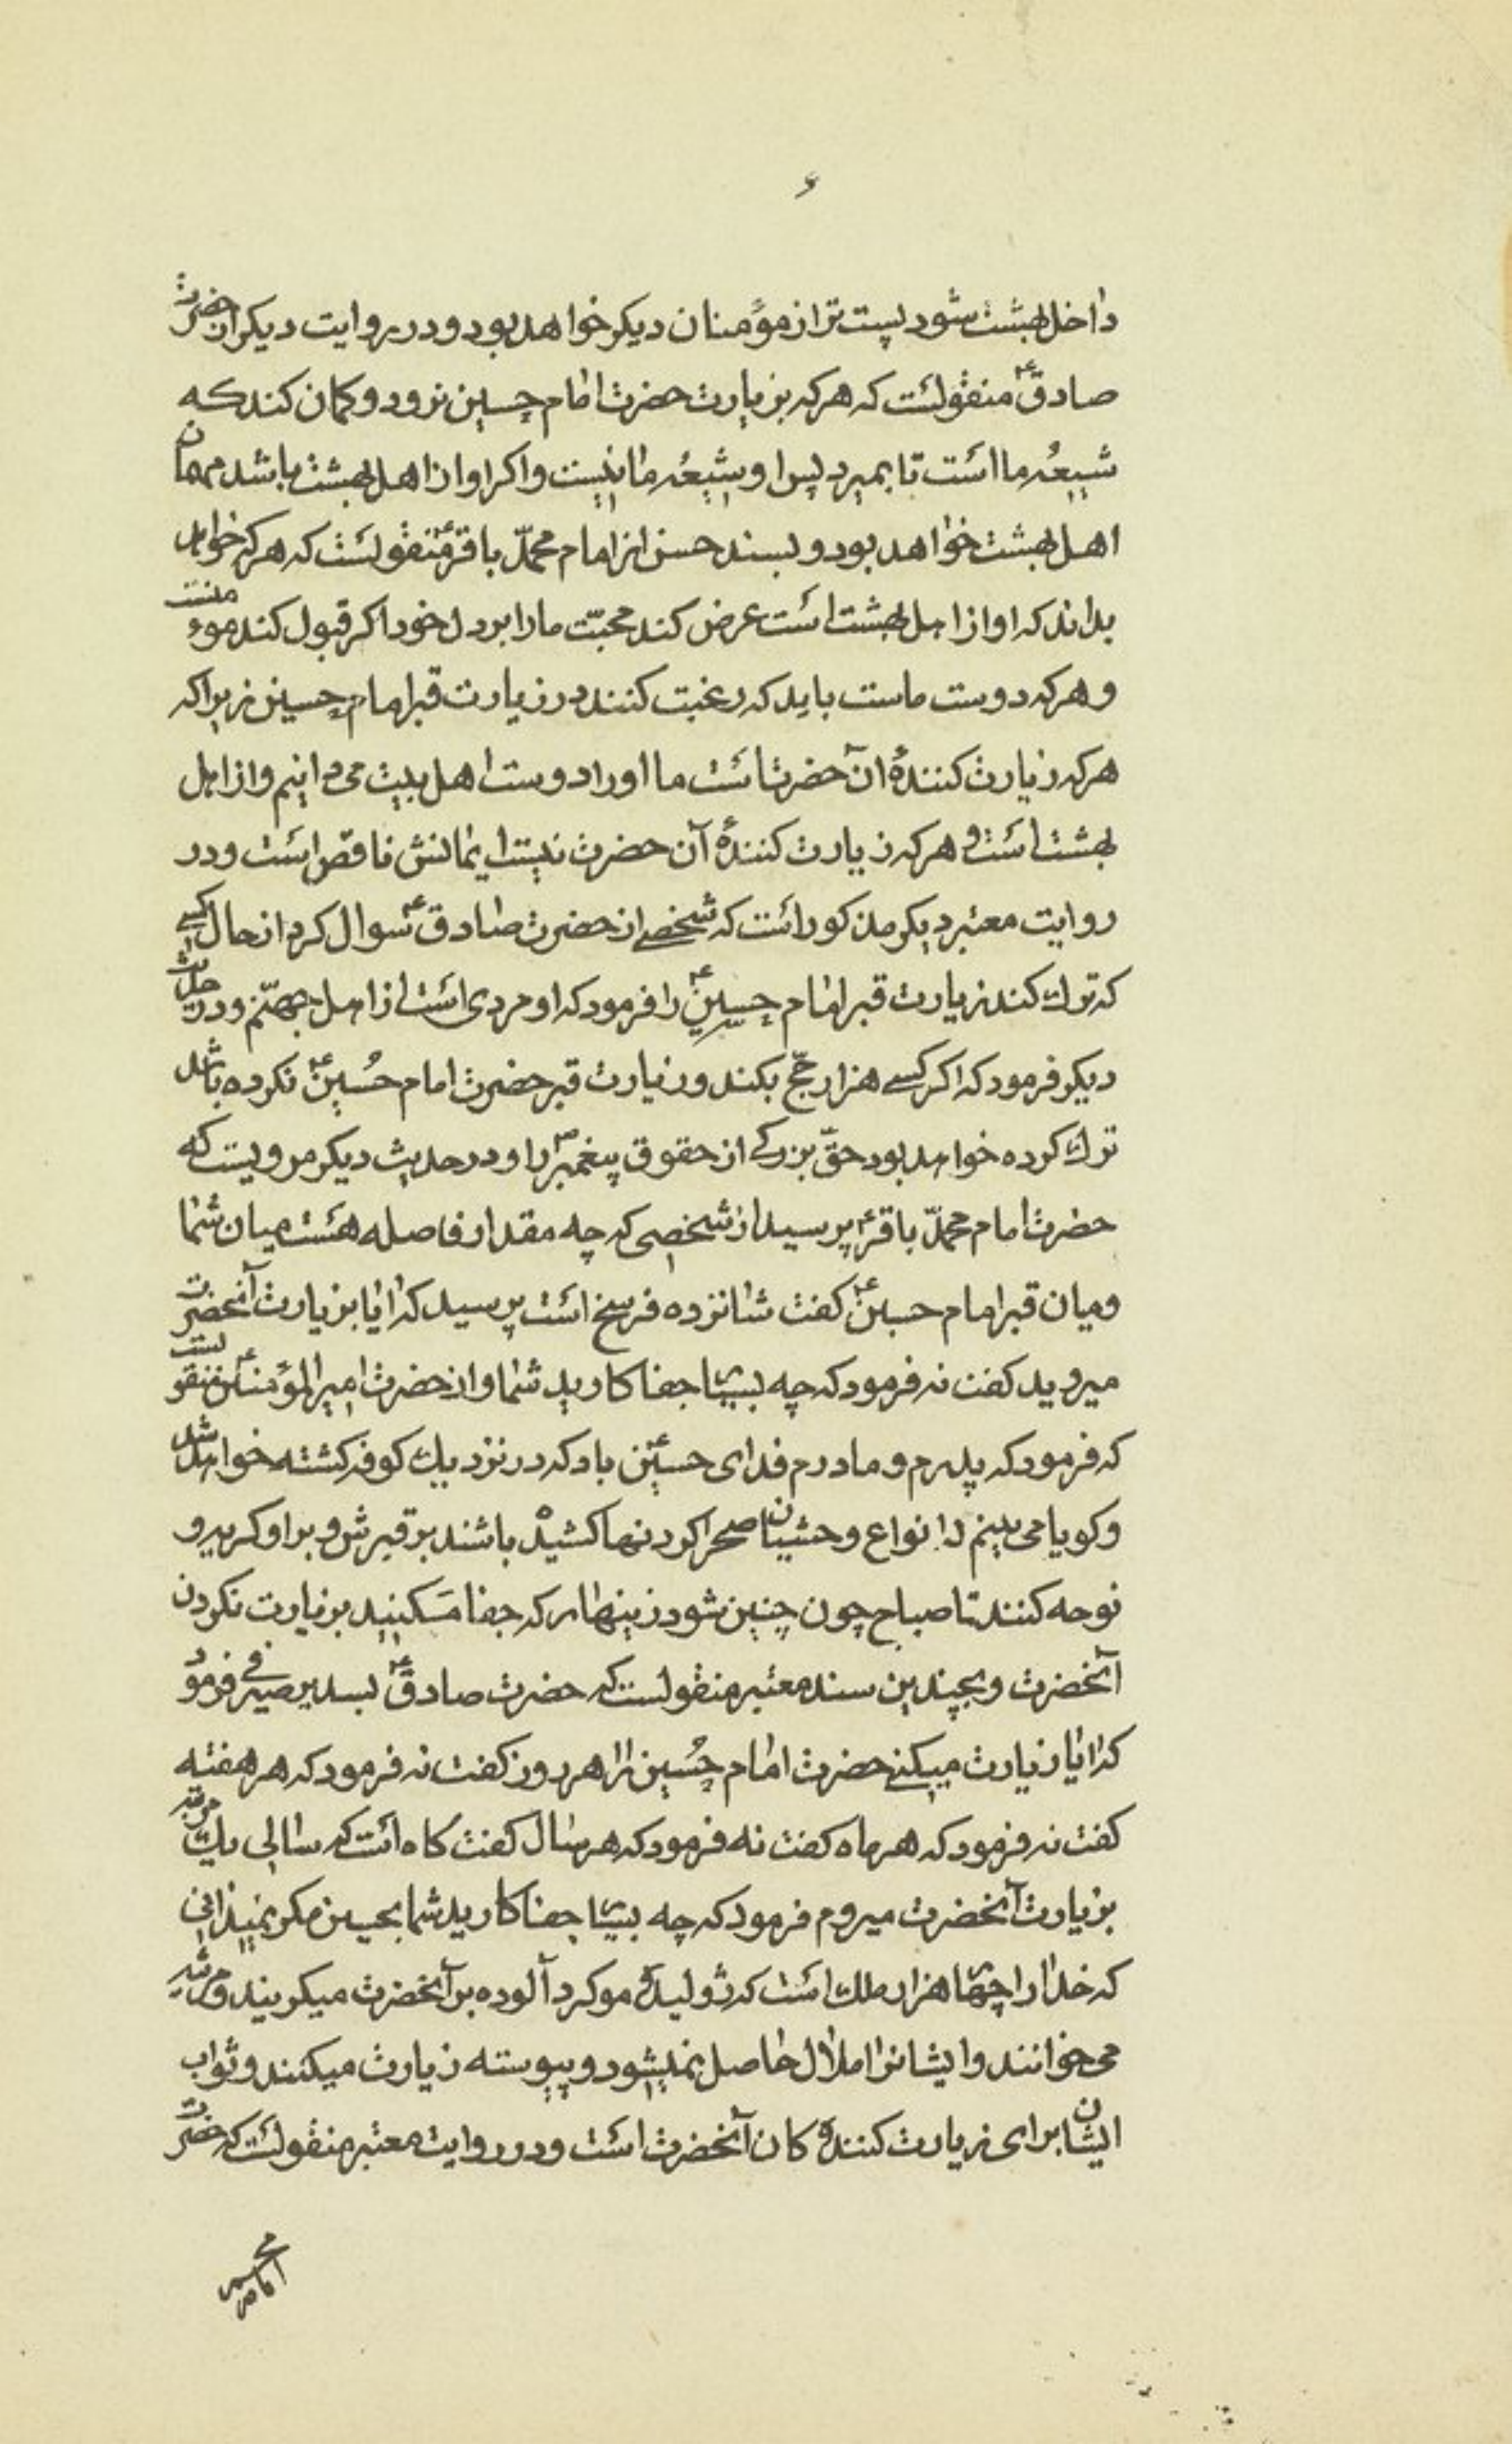 ۶
داخل بهشت شود پست تر از مؤمنان دیکر خواهد بود و در روایت دیکر از حضرت
صادقؑ منقولست که هرکه بزیارت حضرت امام حسین نرود و کمان کند که
شیعهٔ ما است تا بمیرد پس او شیعهٔ ما نیست و اکر او از اهل بهشت باشد مهمان
اهل بهشت خواهد بود و بسند حسن از امام محمّد باقرؑ منقولست که هرکه خواهد
بداند که او از اهل بهشت است عرض کند محبّت ما را بر دل خود اکر قبول کند مؤمنست
و هرکه دوست ماست باید که رغبت کنند در زیارت قبر امام حسین زیرا که
هرکه زیارت کنندهٔ آن حضرت است ما او را دوست اهل بیت می دانیم و از اهل
بهشت است و هرکه زیارت کنندهٔ آن حضرت نیست ایمانش ناقص است و در
روایت معتبر دیکر مذکور است که شخصے از حضرت صادقؑ سوال کرد از حال کسے
که ترك کند زیارت قبر امام حسینؑ را فرمود که او مردی است از اهل جهنّم و در حدیث
دیکر فرمود که اکر کسے هزار حجّ بکند و زیارت قبر حضرت امام حُسینؑ نکرده باشد
ترك کرده خواهد بود حقّ بزرکے از حقوق پیغمبرؐ را و در حدیث دیکر مرویست که
حضرت امام محمّد باقرؑ پرسید از شخصی که چه مقدار فاصله هست میان شما
و میان قبر امام حسینؑ کفت شانزده فرسخ است پرسید که ایا بزیارت آنحضرت
میروید کفت نه فرمود که چه بسیار جفا کارید شما و از حضرت امیرالمؤمنینؑ منقولست
که فرمود که پدرم و مادرم فدای حسینؑ باد که در نزدیك کوفه کشته خواهد شد
و کویا می بینم انواع وحشیان صحرا کردنها کشیده باشند بر قبرش و بر او کریه و
نوحه کنند تا صباح چون چنین شود زینهار که جفا مَکنید بزیارت نکردن
آنحضرت و بچندین سند معتبر منقولست که حضرت صادقؑ بسدیر صیرفے فرمود
که ایا زیارت میکنے حضرت امام حُسین را هر روز کفت نه فرمود که هر هفته
کفت نه فرمود که هر ماه کفت نه فرمود که هر سال کفت کاه است که سالی یك مرتبه
بزیارت آنحضرت میروم فرمود که چه بسیار جفا کارید شما بحسین مکر نمیدانی
که خدا را چهار هزار ملك است که ژولیدهٔ مو کرد آلوده بر آنحضرت میکریند و مرثیه
می خوانند و ایشانرا ملال حاصل نمیشود و پیوسته زیارت میکنند و ثواب
ایشان برای زیارت کنندهٔ کان آنحضرت است و در روایت معتبر منقولست که حضرت